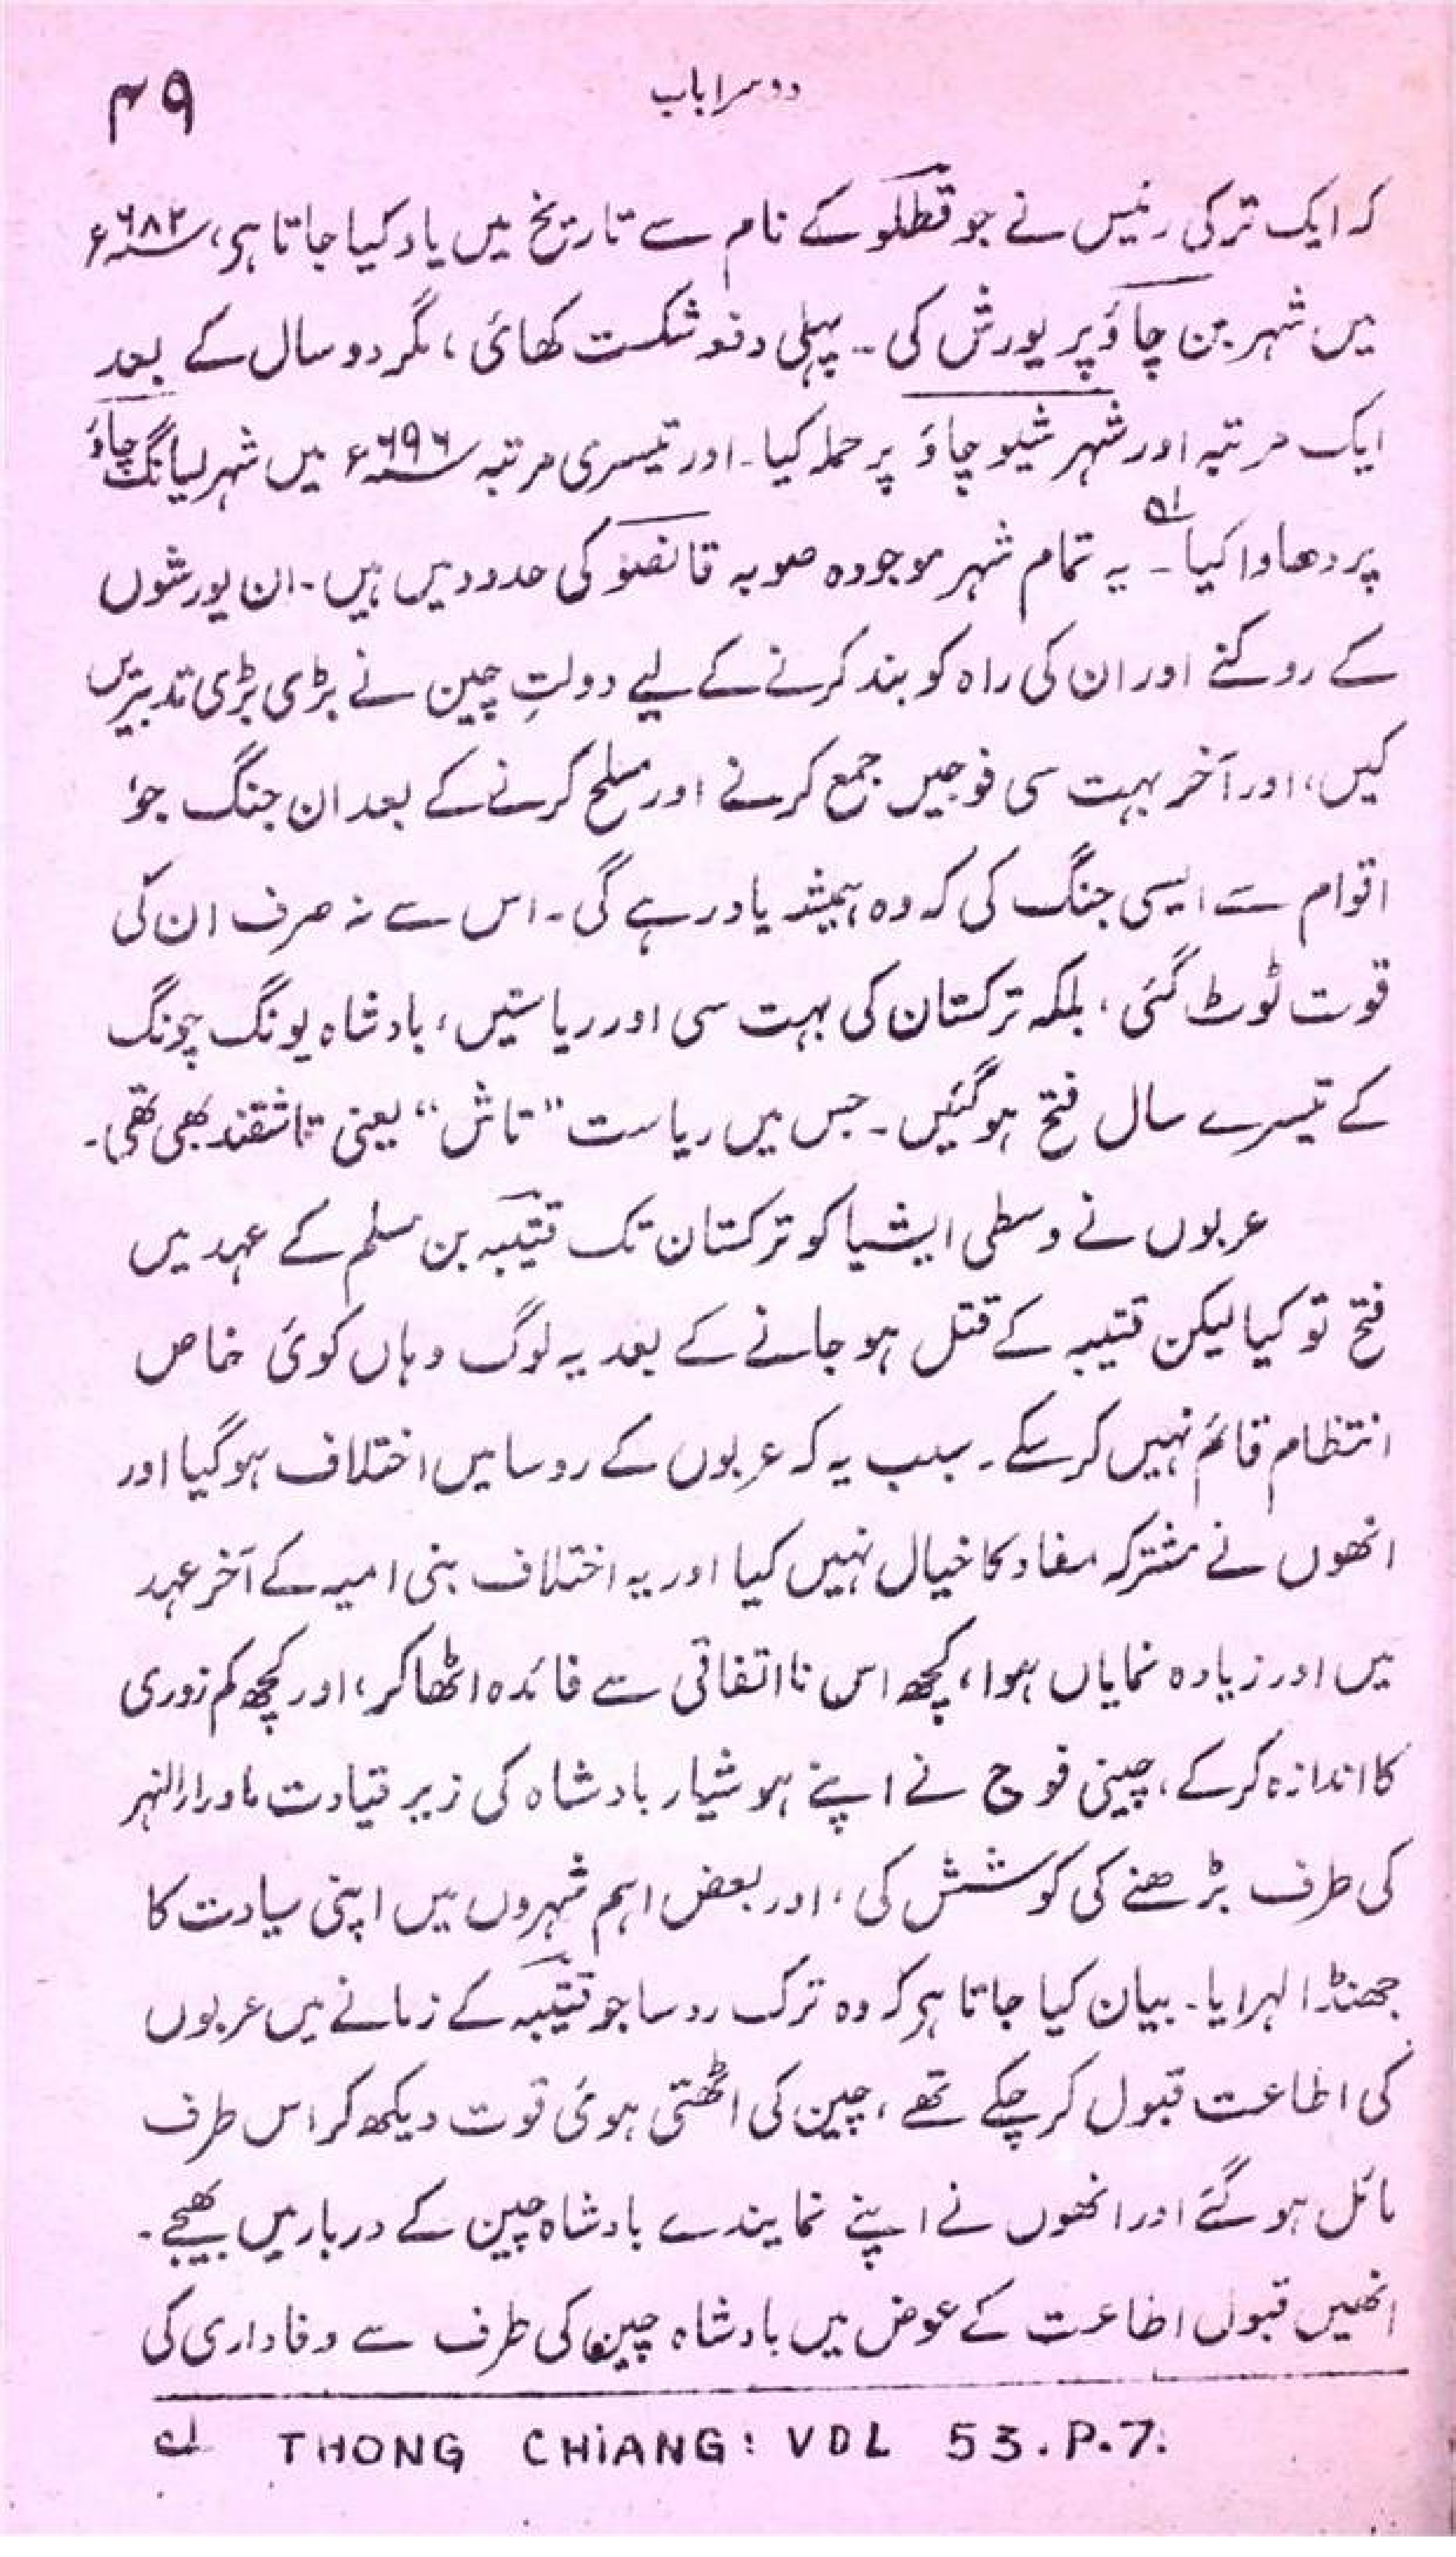 دوسرا باب
۴۹
کہ ایک ترکی رئیس نے جو قطلکو کے نام سے تاریخ میں یاد کیا جاتا ہی، ۶۸۲ء
میں شہر بن چاؤ پر یورش کی۔ پہلی دفعہ شکست کھائی، مگر دو سال کے بعد
ایک مرتبہ اور شہر شیو چاؤ پر حملہ کیا۔ اور تیسری مرتبہ ۶۹۶ء میں شہر لیانگ چاؤ
پر دھاوا کیا۔ لہ یہ تمام شہر موجودہ صوبہ قانصو کی حدود میں ہیں۔ ان یورشوں
کے روکنے اور ان کی راہ کو بند کرنے کے لیے دولتِ چین نے بڑی بڑی تدبیریں
کیں، اور آخر بہت سی فوجیں جمع کرنے اور مسلح کرنے کے بعد ان جنگ جو
اقوام سے ایسی جنگ کی کہ وہ ہمیشہ یاد رہے گی۔ اس سے نہ صرف ان کی
قوت ٹوٹ گئی، بلکہ ترکستان کی بہت سی اور ریاستیں، بادشاہ یونگ چونگ
کے تیسرے سال فتح ہوگئیں۔ جس میں ریاست "تاش" یعنی تاشقند بھی تھی۔
عربوں نے وسطی ایشیا کو ترکستان تک قتیبہ بن مسلم کے عہد میں
فتح تو کیا لیکن قتیبہ کے قتل ہو جانے کے بعد یہ لوگ وہاں کوئی خاص
انتظام قائم نہیں کرسکے۔ سبب یہ کہ عربوں کے روسا میں اختلاف ہوگیا اور
انھوں نے مشترکہ مفاد کا خیال نہیں کیا اور یہ اختلاف بنی امیہ کے آخر عہد
میں اور زیادہ نمایاں ہوا، کچھ اس نااتفاقی سے فائدہ اٹھاکر، اور کچھ کم زوری
کا اندازہ کرکے، چینی فوج نے اپنے ہوشیار بادشاہ کی زیر قیادت ماورارالنہر
کی طرف بڑھنے کی کوشش کی، اور بعض اہم شہروں میں اپنی سیادت کا
جھنڈا لہرایا۔ بیان کیا جاتا ہر کہ وہ ترک روسا جو قتیبہ کے زمانے میں عربوں
کی اطاعت قبول کرچکے تھے، چین کی اٹھتی ہوئی قوت دیکھ کر اس طرف
مائل ہوگئے اور انھوں نے اپنے نمایندے بادشاہ چین کے دربار میں بھیجے۔
انھیں قبول اطاعت کے عوض میں بادشاہ چین کی طرف سے وفاداری کی
لہ THONG CHiANG: VOL 53. P.7.